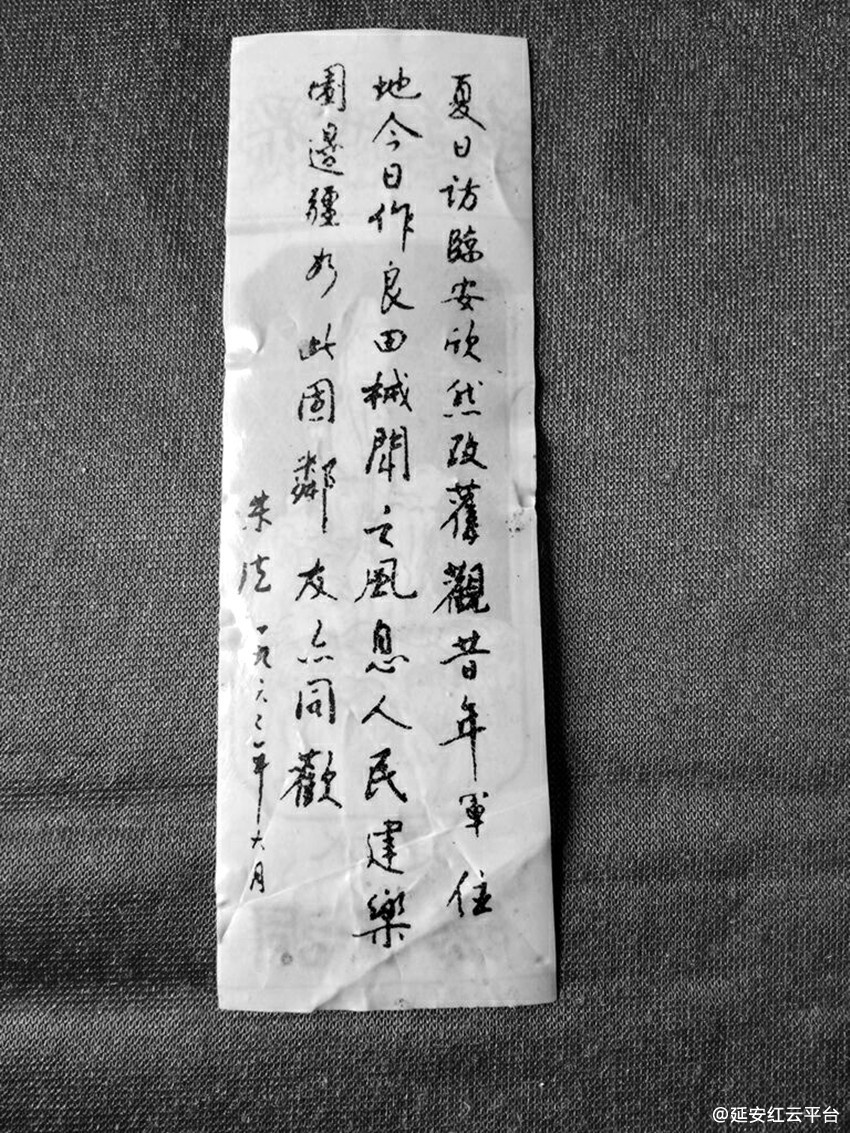 夏日訪臨安欣然改舊觀昔年軍住
地今日作良田械鬥之風息人民建樂
園邊疆如此固鄰友亦同歡
朱德一九六二年六月
@延安红云平台